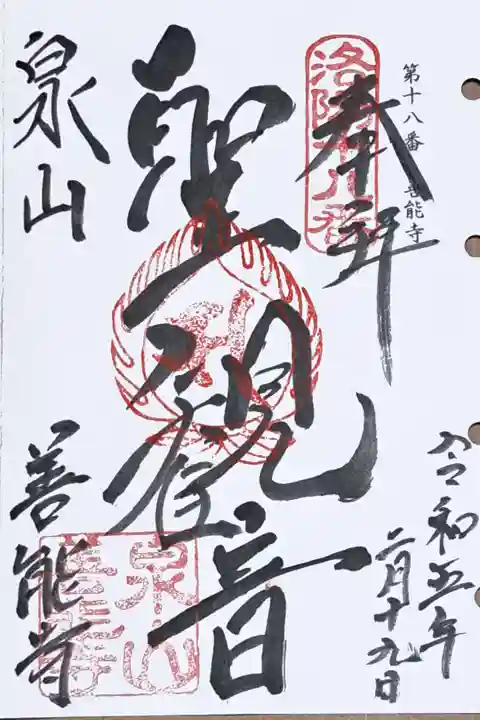 第十八番 善能寺
洛陽十八番
奉拝
聖観音
泉山
善能寺
泉山
善能寺
令和五年
二月十九日